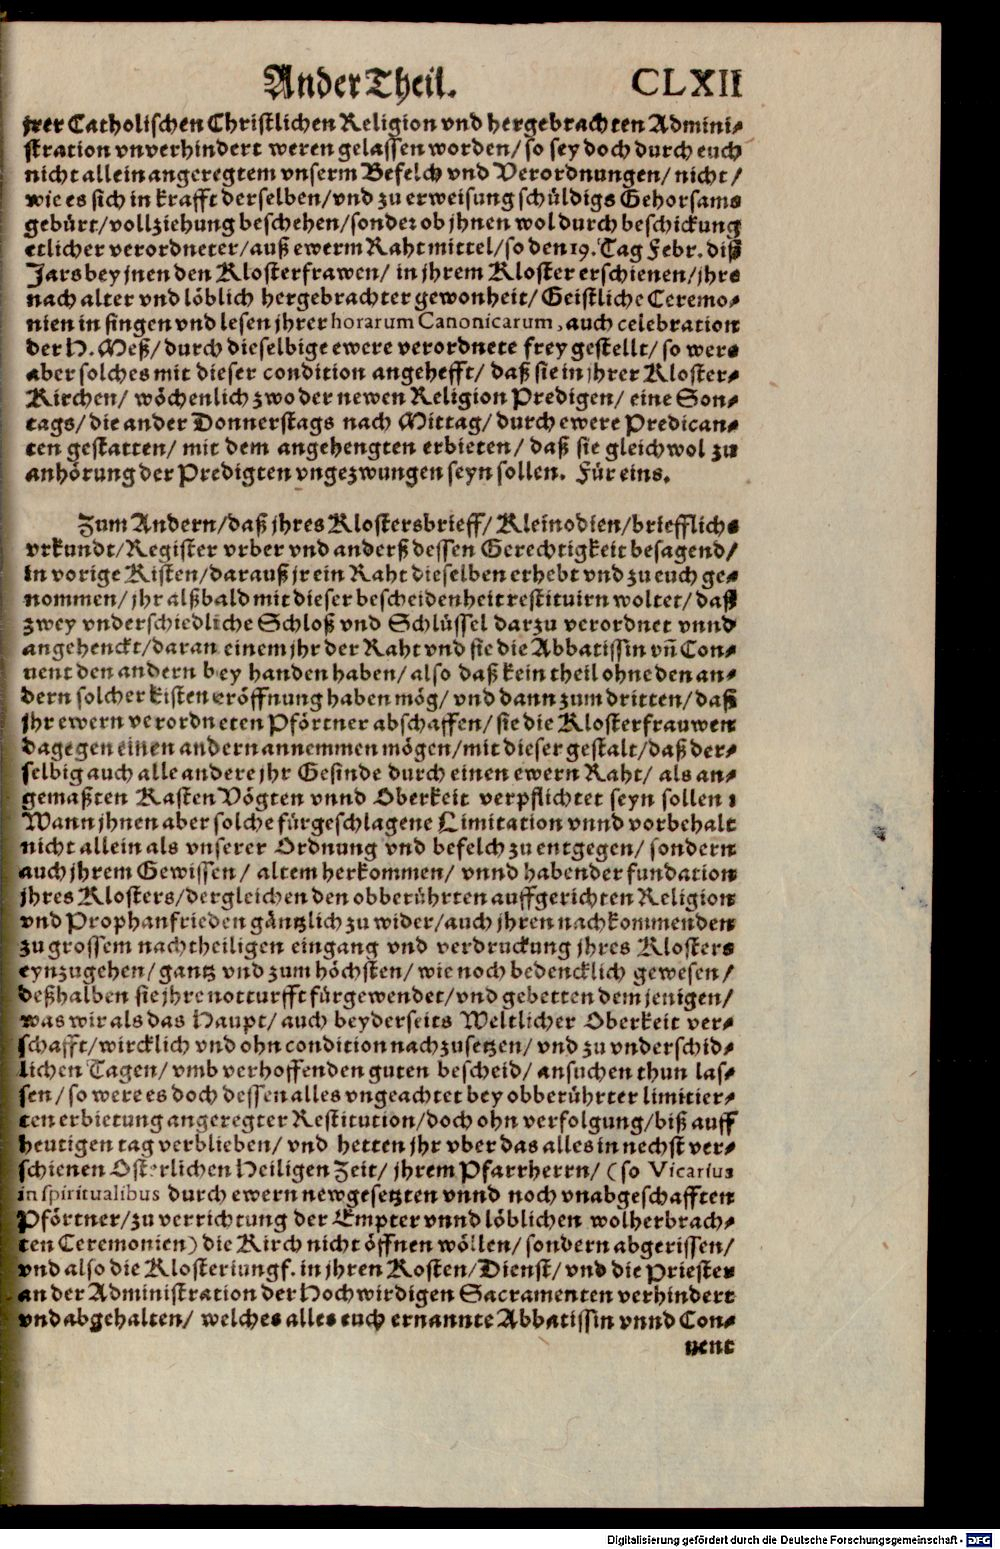 Ander Theil. CLXII
jrer Catholischen Christlichen Religion vnd hergebrachten Admini-
stration vnverhindert weren gelassen worden/ so sey doch durch euch
nicht allein angeregtem vnserm Befelch vnd Verordnungen/ nicht/
wie es sich in krafft derselben/ vnd zu erweisung schüldigs Gehorsams
gebürt/ vollziehung beschehen/ sonder ob jhnen wol durch beschickung
etlicher verordneter/ auß ewerm Raht mittel/ so den 19. Tag Febr. diß
Jars bey jnen den Klosterfrawen/ in jhrem Kloster erschienen/ jhre
nach alter vnd löblich hergebrachter gewonheit/ Geistliche Ceremo-
nien in singen vnd lesen jhrer horarum Canonicarum, auch celebration
der H. Meß/ durch dieselbige ewere verordnete frey gestellt/ so were
aber solches mit dieser condition angehefft/ daß sie in jhrer Kloster-
Kirchen/ wöchenlich zwo der newen Religion Predigen/ eine Son-
tags/ die ander Donnerstags nach Mittag/ durch ewere Predican-
ten gestatten/ mit dem angehengten erbieten/ daß sie gleichwol zu
anhörung der Predigten vngezwungen seyn sollen. Für eins.
Zum Andern/ daß jhres Klostersbrieff/ Kleinodien/ brieffliche
vrkundt/ Register vrber vnd anderß dessen Gerechtigkeit besagend/
in vorige Kisten/ darauß jr ein Raht dieselben erhebt vnd zu euch ge-
nommen/ jhr alßbald mit dieser bescheidenheit restituirn woltet/ daß
zwey vnderschiedliche Schloß vnd Schlüssel darzu verordnet vnnd
angehenckt/ daran einem jhr der Raht vnd sie die Abbatissin vñ Con-
uent den andern bey handen haben/ also daß kein theil ohne den an-
dern solcher kisten eröffnung haben mög/ vnd dann zum dritten/ daß
jhr ewern verordneten Pförtner abschaffen/ sie die Klosterfrauwen
dagegen einen andern annemmen mögen/ mit dieser gestalt/ daß der-
selbig auch alle andere jhr Gesinde durch einen ewern Raht/ als an-
gemaßten Kasten Vögten vnnd Oberkeit verpflichtet seyn sollen:
Wann jhnen aber solche fürgeschlagene Limitation vnnd vorbehalt
nicht allein als vnserer Ordnung vnd befelch zu entgegen/ sondern
auch jhrem Gewissen/ altem herkommen/ vnnd habender fundation
jhres Klosters/ dergleichen den obberührten auffgerichten Religion
vnd Prophanfrieden gäntzlich zu wider/ auch jhren nachkommenden
zu grossem nachtheiligen eingang vnd verdruckung jhres Klosters
eynzugehen/ gantz vnd zum höchsten/ wie noch bedencklich gewesen/
deßhalben sie jhre notturfft fürgewendet/ vnd gebetten demjenigen/
was wir als das Haupt/ auch beyderseits Weltlicher Oberkeit ver-
schafft/ wircklich vnd ohn condition nachzusetzen/ vnd zu vnderschid-
lichen Tagen/ vmb verhoffenden guten bescheid/ ansuchen thun las-
sen/ so were es doch dessen alles vngeachtet bey obberührter limitier-
ten erbietung angeregter Restitution/ doch ohn verfolgung/ biß auff
heutigen tag verblieben/ vnd hetten jhr vber das alles in nechst ver-
schienen Osterlichen Heiligen Zeit/ jhrem Pfarrherrn/ (so Vicarius
in spiritualibus durch ewern newgesetzten vnnd noch vnabgeschafften
Pförtner/ zu verrichtung der Empter vnnd löblichen wolherbrach-
ten Ceremonien) die Kirch nicht öffnen wöllen/ sondern abgerissen/
vnd also die Klosterjungf. in jhren Kosten/ Dienst/ vnd die Priester
an der Administration der Hochwirdigen Sacramenten verhindert
vnd abgehalten/ welches alles euch ernannte Abbatissin vnnd Con-
uent
Digitalisierung gefördert durch die Deutsche Forschungsgemeinschaft - DFG